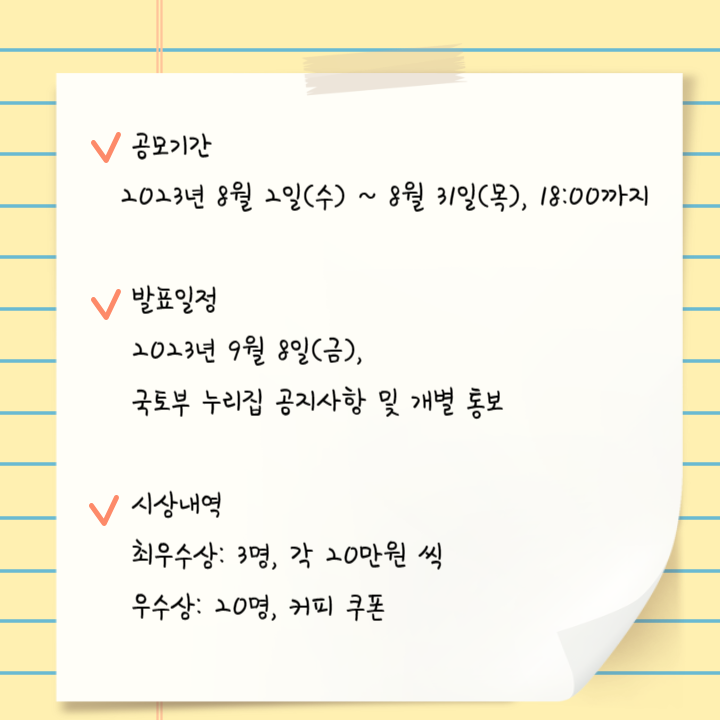 공모기간
2023년 8월 2일(수) ~ 8월 31일(목), 18:00까지
발표일정
2023년 9월 8일(금),
국토부 누리집 공지사항 및 개별 통보
시상내역
최우수상: 3명, 각 20만원 씩
우수상: 20명, 커피 쿠폰